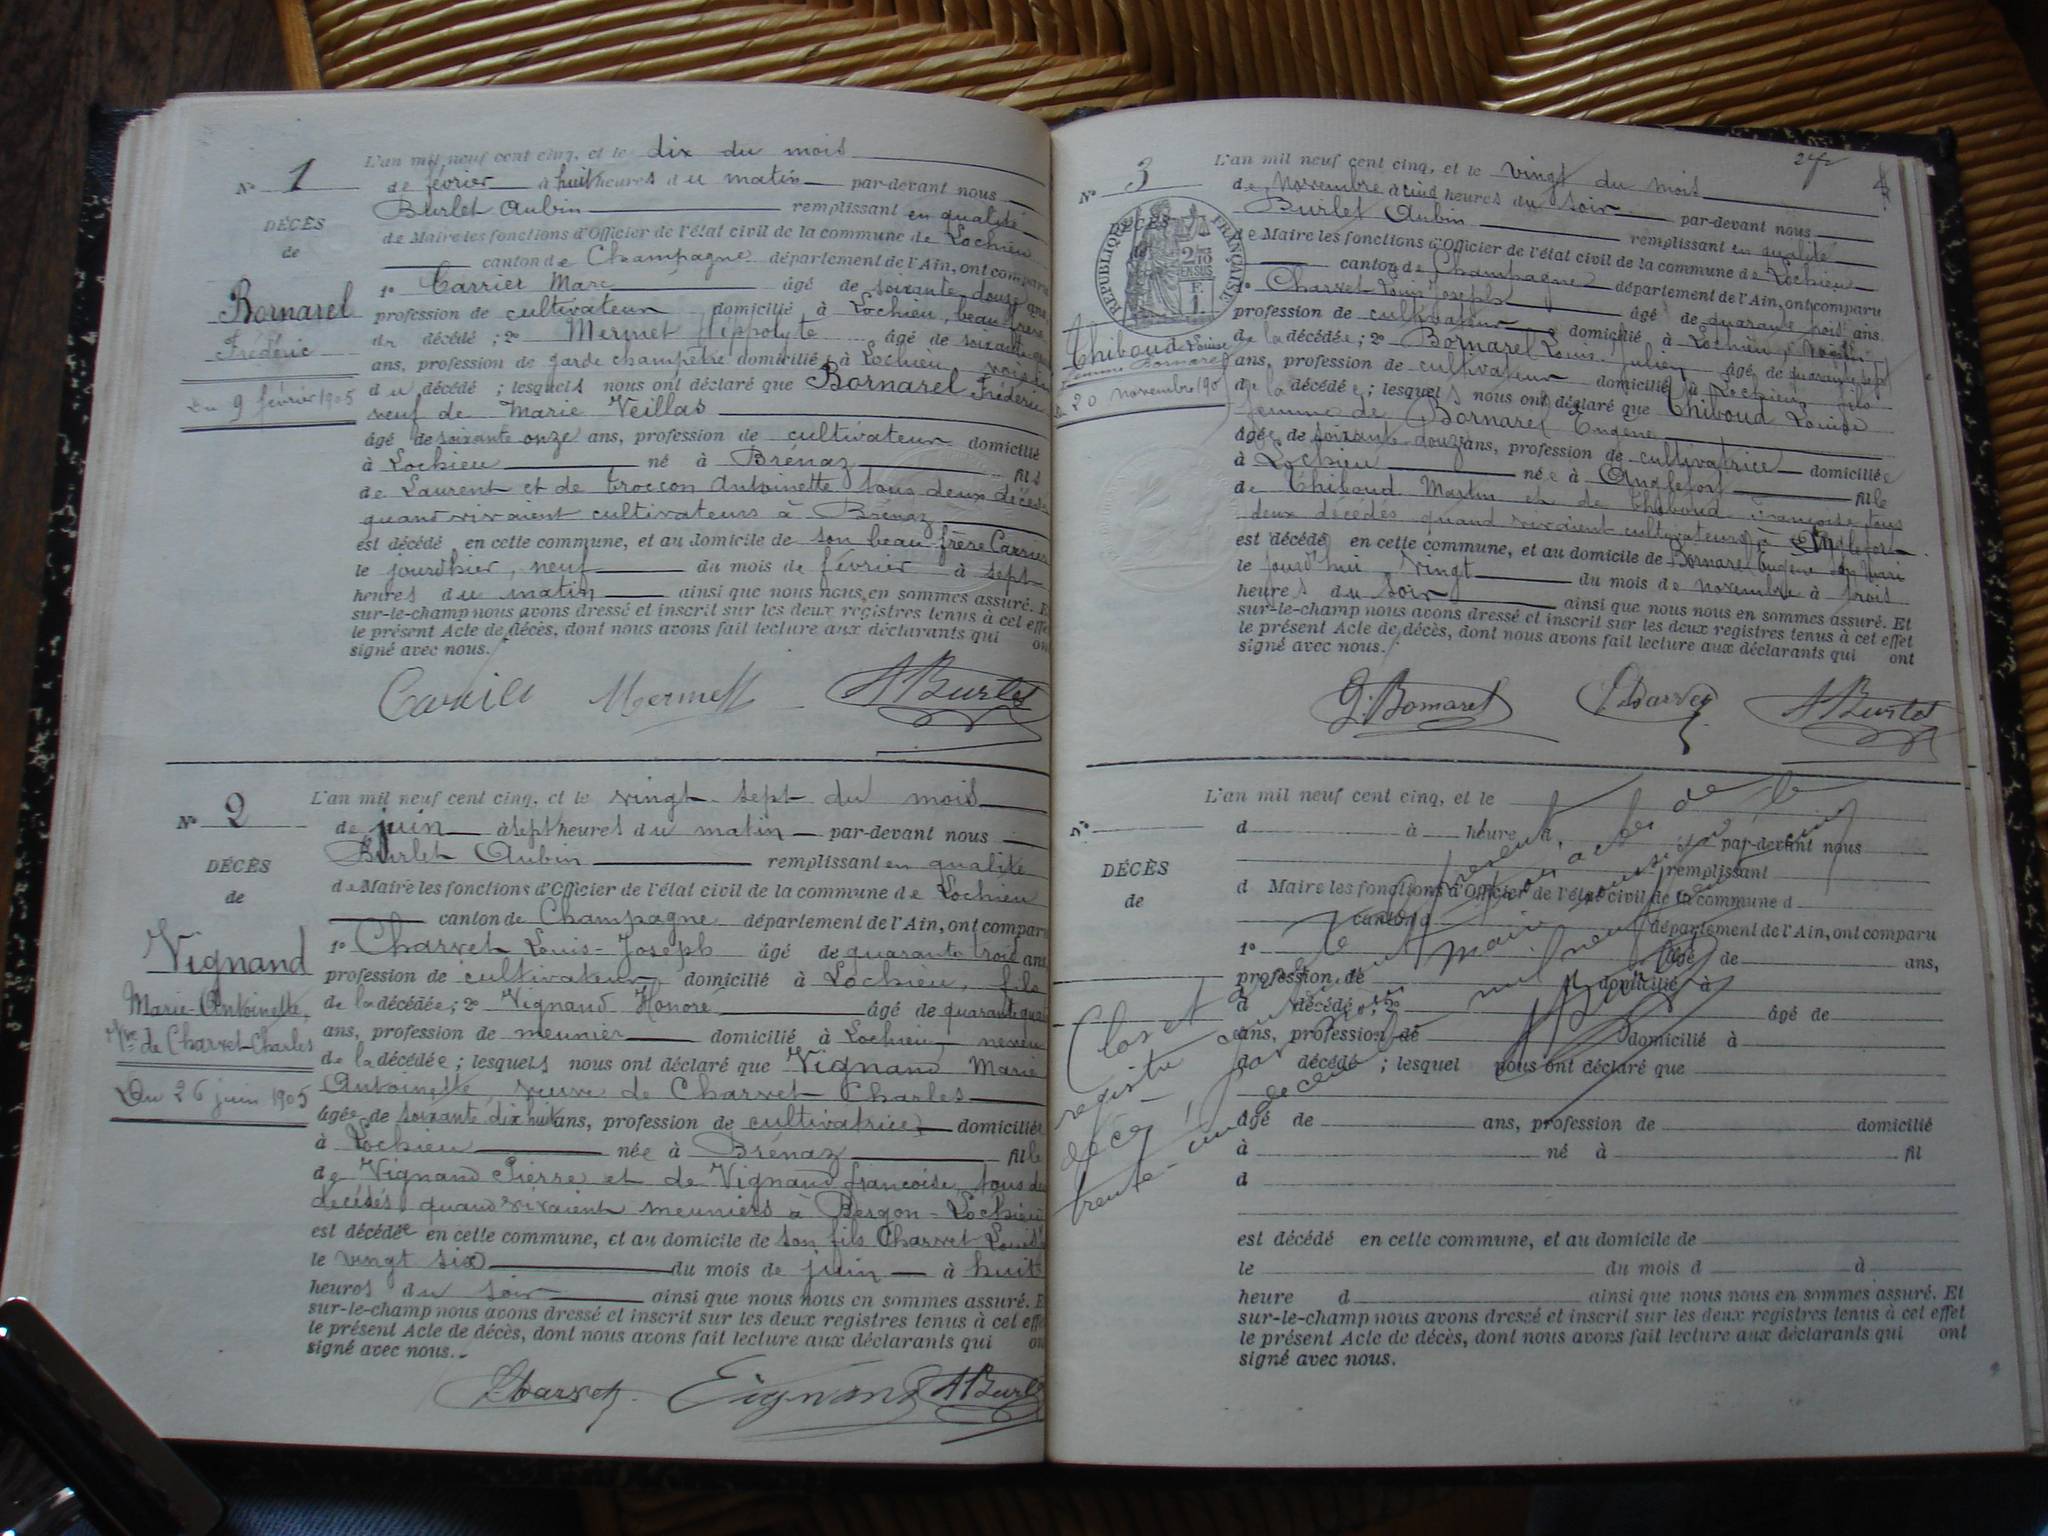 N° 1
DÉCÈS
de
Bornarel
Frédéric
Du 9 février 1905
L'an mil neuf cent cinq, et le dix du mois
de février à huit heures du matin par-devant nous
Burlet Aubin remplissant en qualité
de Maire les fonctions d'Officier de l'état civil de la commune de Lochieu
canton de Champagne département de l'Ain, ont comparu
1° Carrier Marc âgé de soixante douze ans
profession de cultivateur domicilié à Lochieu, beau-frère
du décédé ; 2° Mermet Hippolyte âgé de soixante
ans, profession de garde champêtre domicilié à Lochieu, voisin
du décédé ; lesquels nous ont déclaré que Bornarel Frédéric
veuf de Marie Veillas
âgé de soixante onze ans, profession de cultivateur domicilié
à Lochieu né à Brénaz fils
de Laurent et de Troccon Antoinette tous deux décédés
quand vivaient cultivateurs à Brénaz
est décédé en cette commune, et au domicile de son beau-frère Carrier
le jourd'hier, neuf du mois de février à sept
heures du matin ainsi que nous nous en sommes assuré. Et
sur-le-champ nous avons dressé et inscrit sur les deux registres tenus à cet effet
le présent Acte de décès, dont nous avons fait lecture aux déclarants qui ont
signé avec nous.
Carrier Mermet ABurlet
N° 2
DÉCÈS
de
Vignand
Marie-Antoinette,
Vve de Charvet Charles
Du 26 juin 1905
L'an mil neuf cent cinq, et le vingt-sept du mois
de juin à sept heures du matin par-devant nous
Burlet Aubin remplissant en qualité
de Maire les fonctions d'Officier de l'état civil de la commune de Lochieu
canton de Champagne département de l'Ain, ont comparu
1° Charvet Louis-Joseph âgé de quarante trois ans
profession de cultivateur domicilié à Lochieu, fils
de la décédée ; 2° Vignand Honoré âgé de quarante
ans, profession de meunier domicilié à Lochieu neveu
de la décédée ; lesquels nous ont déclaré que Vignand Marie
Antoinette veuve de Charvet Charles
âgée de soixante dix huit ans, profession de cultivatrice domiciliée
à Lochieu née à Brénaz fille
de Vignand Pierre et de Vignand françoise, tous deux
décédés quand vivaient meuniers à Bergon-Lochieu
est décédée en cette commune, et au domicile de son fils Charvet Louis
le vingt six du mois de juin à huit
heures du soir ainsi que nous nous en sommes assuré. Et
sur-le-champ nous avons dressé et inscrit sur les deux registres tenus à cet effet
le présent Acte de décès, dont nous avons fait lecture aux déclarants qui ont
signé avec nous.
LCharvet Vignand ABurlet
N° 3
DÉCÈS
RÉPUBLIQUE FRANÇAISE
Thiboud Louise
femme Bornarel
20 novembre 190
L'an mil neuf cent cinq, et le vingt du mois
de Novembre à cinq heures du soir par-devant nous
Burlet Aubin remplissant en qualité
de Maire les fonctions d'Officier de l'état civil de la commune de Lochieu
canton de Champagne département de l'Ain, ont comparu
1° Charvet Louis Joseph âgé de quarante trois ans
profession de cultivateur domicilié à Lochieu, voisin
de la décédée ; 2° Bornarel Louis Julien âgé de quarante sept
ans, profession de cultivateur domicilié à Lochieu fils
de la décédée ; lesquels nous ont déclaré que Thiboud Louise
femme de Bornarel Eugène
âgée de soixante douze ans, profession de cultivatrice domiciliée
à Lochieu née à Anglefort fille
de Thiboud Martin et de Thiboud Françoise tous
deux décédés quand vivaient cultivateurs à Anglefort
est décédé en cette commune, et au domicile de Bornarel Eugène son mari
le jourd'hui, vingt du mois de novembre à trois
heures du soir ainsi que nous nous en sommes assuré. Et
sur-le-champ nous avons dressé et inscrit sur les deux registres tenus à cet effet
le présent Acte de décès, dont nous avons fait lecture aux déclarants qui ont
signé avec nous.
Bornarel LCharvet ABurlet
N°
DÉCÈS
de
L'an mil neuf cent cinq, et le
d à heure d par-devant nous
remplissant
d Maire les fonctions d'Officier de l'état civil de la commune d
canton d département de l'Ain, ont comparu
1° âgé de ans,
profession de domicilié à
d décédé ; 2° âgé de
ans, profession de domicilié à
d décédé ; lesquel nous ont déclaré que
âgé de ans, profession de domicilié
à né à fil
d
est décédé en cette commune, et au domicile de
le du mois d à
heure d ainsi que nous nous en sommes assuré. Et
sur-le-champ nous avons dressé et inscrit sur les deux registres tenus à cet effet
le présent Acte de décès, dont nous avons fait lecture aux déclarants qui ont
signé avec nous.
Clos et le présent
registre actes de
décès, par nous maire soussigné
trente-un décembre mil neuf cent cinq
ABurlet